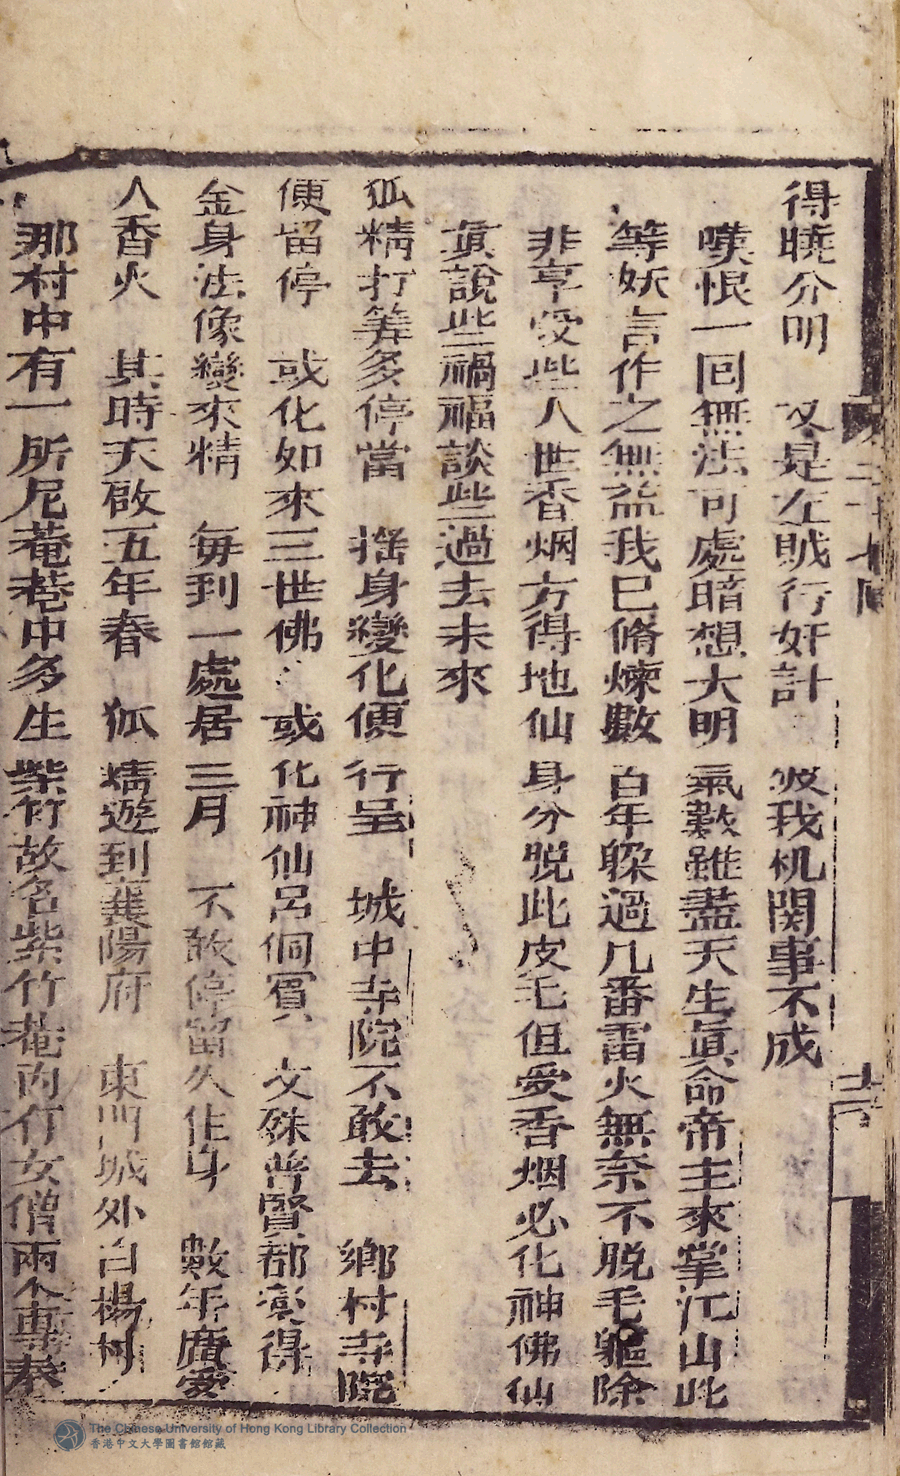 得曉分明　又是左賊行奸計　被我机関事不成
嘆恨一囬無法可處暗想大明氣数雖盡天生眞命帝主來掌江山此
等妖言作之無益我已脩煉數百年躱過几番雷火無奈不脱毛軀除
非享受些人世香烟方得地仙身分脱此皮毛但受香烟必化神佛仙
眞說些禍福談些過去未來
狐精打筭多停當　揺身變化便行呈　城中寺院不敢去　鄉村寺院
便留停　或化如來三世佛　或化神仙呂侗賔　文殊普賢都彰得
金身法像變來精　毎到一處居三月　不敢停留久住身　數年廣愛
人香火　其時天啟五年春　狐精遊到襄陽府　東門城外白楊村
那村中有一所尼菴菴中多生紫竹故名紫竹菴内有女僧兩个專奉
二十七囬
The Chinese University of Hong Kong Library Collection
香港中文大學圖書館館藏